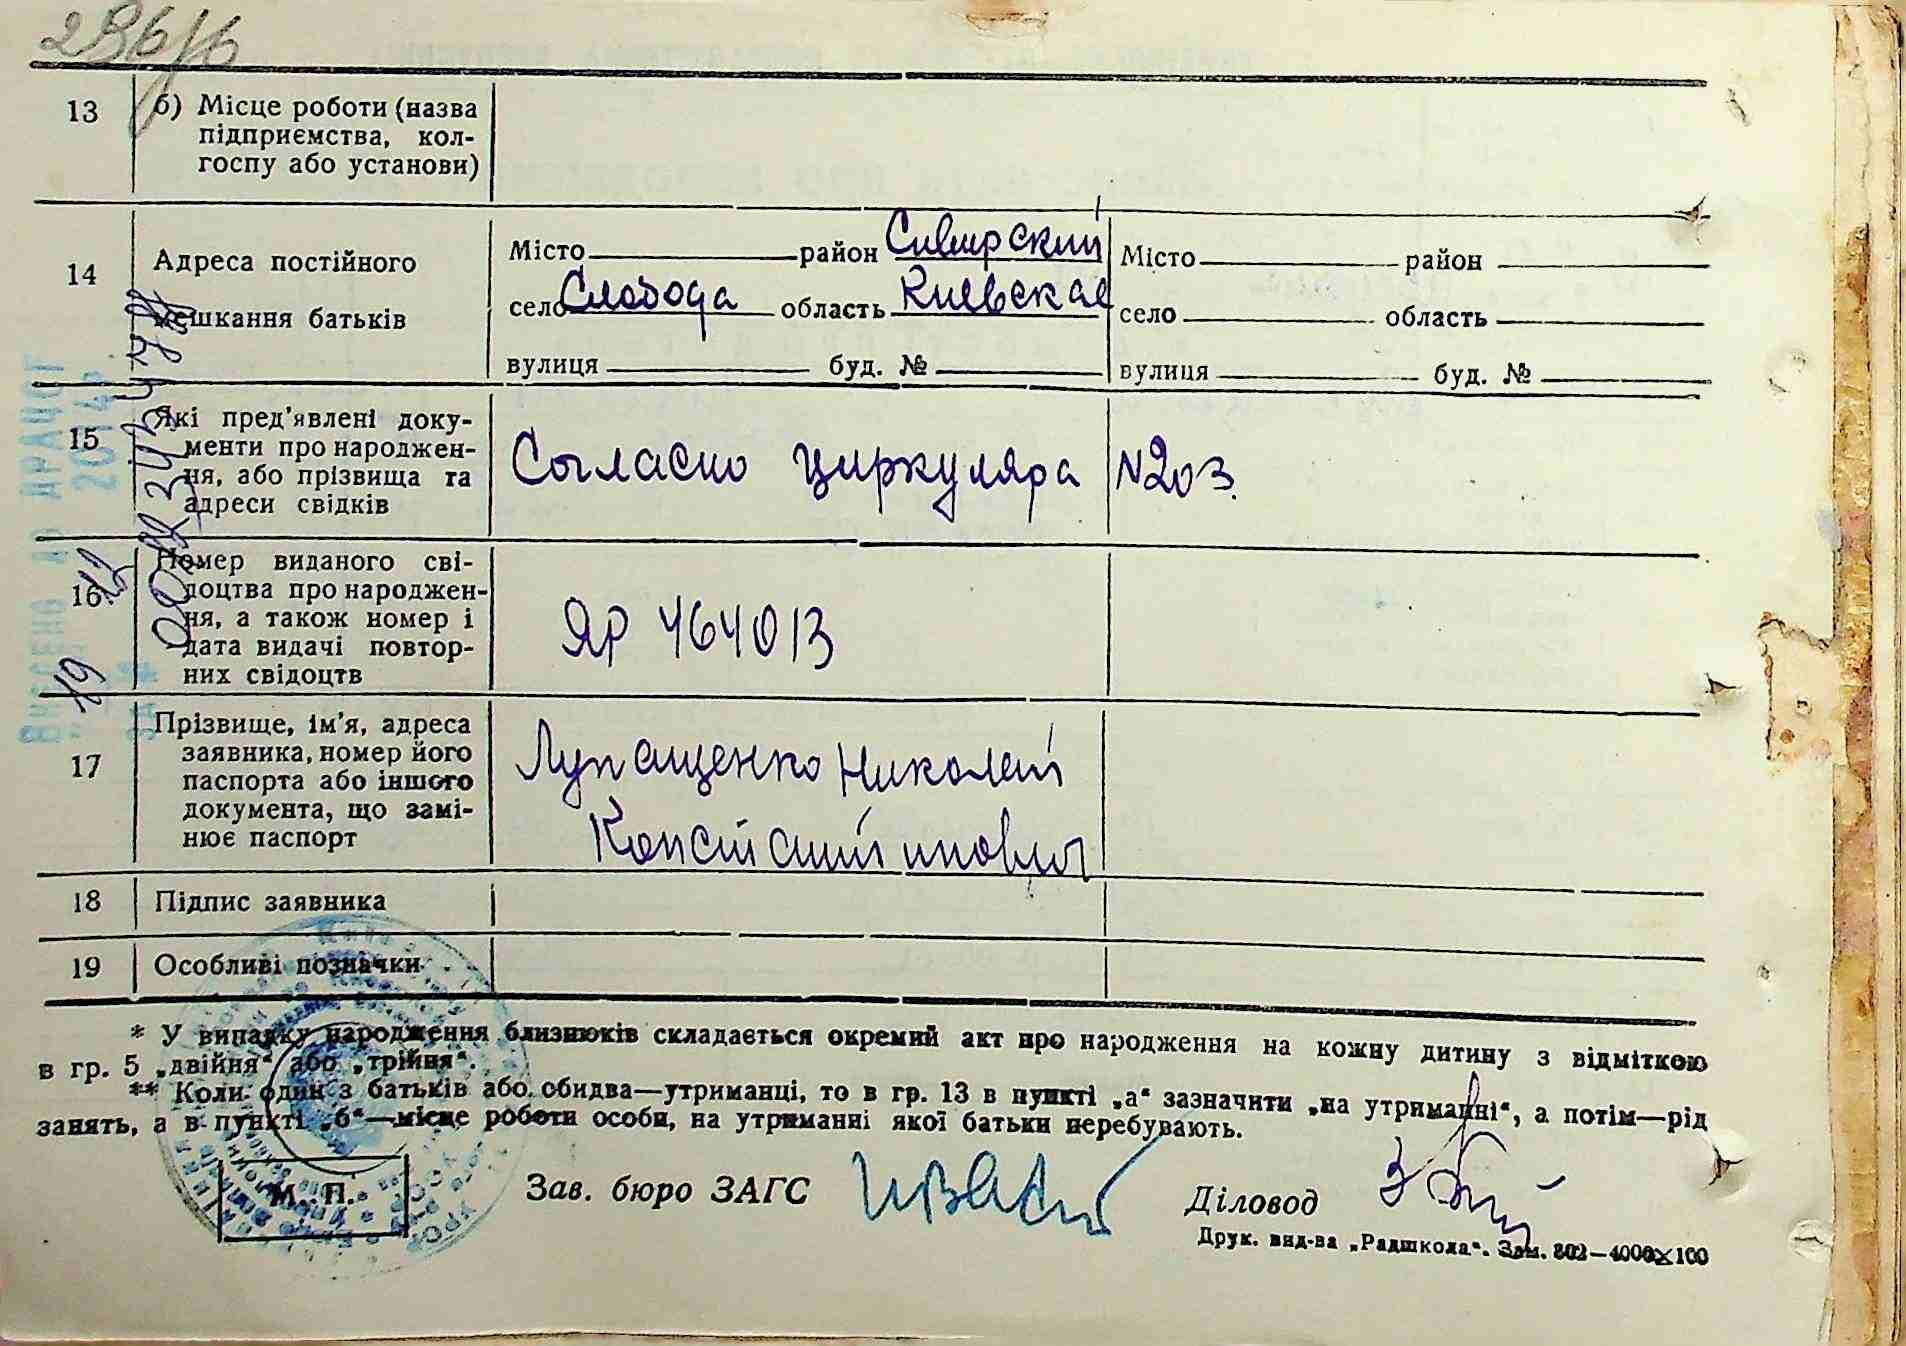 13 б) Місце роботи (назва
підприємства, кол-
госпу або установи)
14 Адреса постійного
мешкання батьків
Місто район Сивирский
село Слобода область Киевская
вулиця буд. №
Місто район
село область
вулиця буд. №
15 Які пред’явлені доку-
менти про народжен-
ня, або прізвища та
адреси свідків
Согласно циркуляра №203.
16 Номер виданого сві-
доцтва про народжен-
ня, а також номер і
дата видачі повтор-
них свідоцтв
ЯР 464013
17 Прізвище, ім’я, адреса
заявника, номер його
паспорта або іншого
документа, що замі-
нює паспорт
Лупащенко Николай
Константинович
18 Підпис заявника
19 Особливі позначки
* У випадку народження близнюків складається окремий акт про народження на кожну дитину з відміткою
в гр. 5 „двійня“ або „трійня“.
** Коли один з батьків або обидва—утриманці, то в гр. 13 в пункті „а“ зазначити „на утриманні“, а потім—рід
занять, а в пункті „б“—місце роботи особи, на утриманні якої батьки перебувають.
М. П.
Зав. бюро ЗАГС
Діловод
Друк. вид-ва „Радшкола“. Зам. 802—4000×100